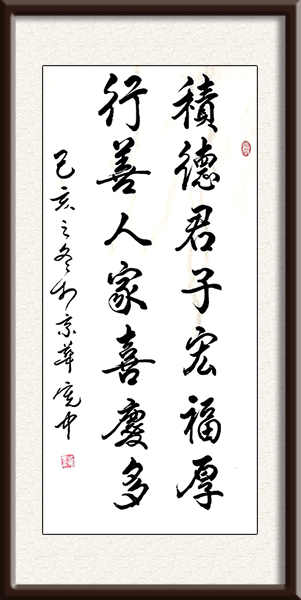 積德君子宏福厚
行善人家喜慶多
己亥之冬於京華寬中